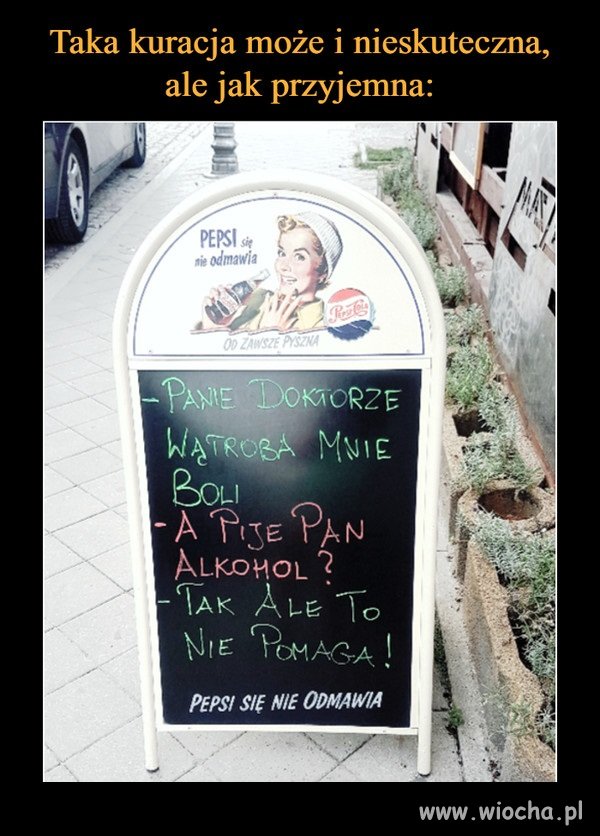 Taka kuracja może i nieskuteczna,
ale jak przyjemna:
PEPSI się
nie odmawia
PEPSI-COLA
OD ZAWSZE PYSZNA
- PANIE DOKTORZE
WĄTROBA MNIE
BOLI
- A PIJE PAN
ALKOHOL?
- TAK ALE TO
NIE POMAGA!
PEPSI SIĘ NIE ODMAWIA
www.wiocha.pl